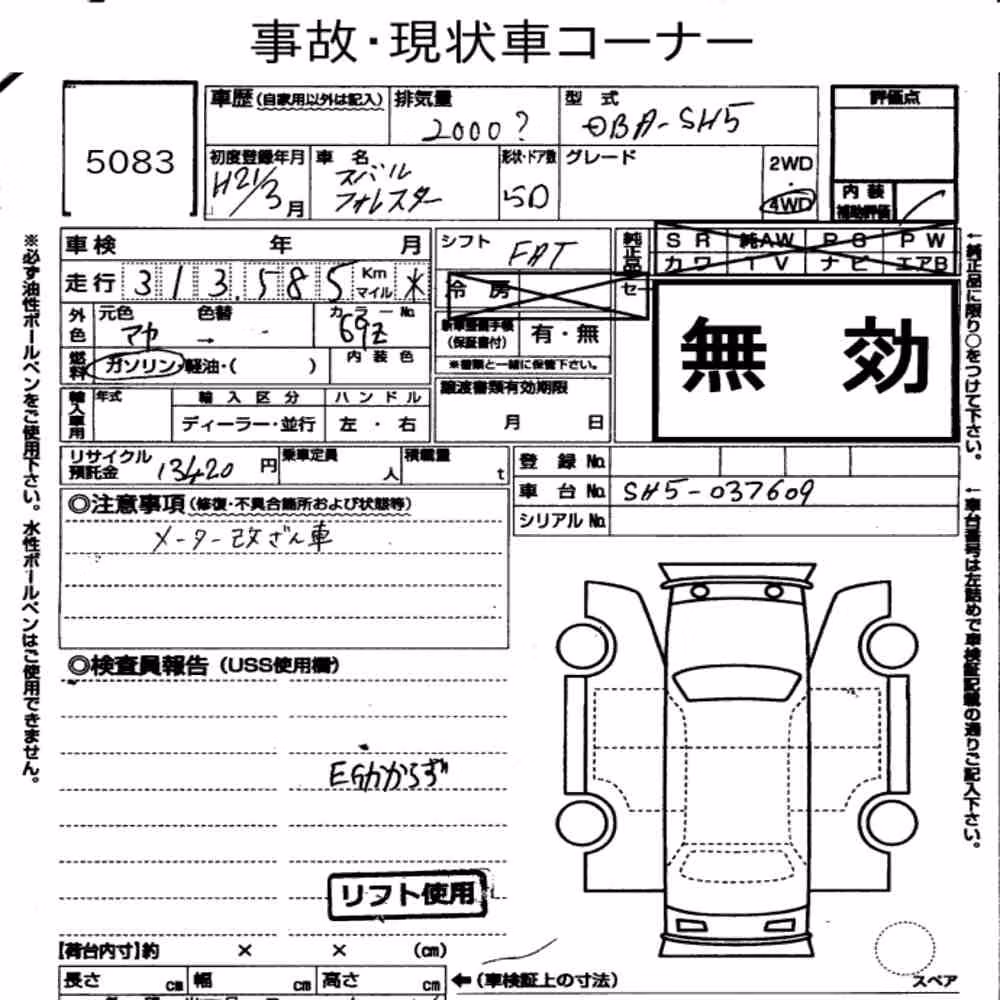 事故・現状車コーナー
5083
車歴(自家用以外は記入)
排気量
2000?
型 式
DBA-SH5
評価点
初度登録年月
H21/3月
車 名
スバル
フォレスター
形状・ドア数
5D
グレード
2WD
・
4WD
内 装
補助評価
車検 年 月
シフト
FAT
純正品
SR 純AW PS PW
カワ TV ナビ エアB
走行 313,585 Km マイル *
冷 房
セー
外色
元色
マヤ
色替
→ -
カラーNo
69Z
新車整備手帳
(保証書付)
有・無
※書類と一緒に保管下さい。
無 効
燃料
ガソリン・軽油・( )
内 装 色
譲渡書類有効期限
月 日
輸入車用
年式
輸 入 区 分
ディーラー・並行
ハンドル
左 ・ 右
リサイクル
預託金
13420 円
乗車定員
人
積載量
t
登 録 No.
車 台 No. SH5-037609
シリアル No.
◎注意事項(修復・不具合箇所および状態等)
メーター改ざん車
◎検査員報告(USS使用欄)
EGかからず
リフト使用
【荷台内寸】約 × × (cm)
長さ cm 幅 cm 高さ cm
←(車検証上の寸法)
スペア
※必ず油性ボールペンをご使用下さい。水性ボールペンはご使用できません。
←純正品に限り○をつけて下さい。
←車台番号は左詰めで車検証記載の通りご記入下さい。